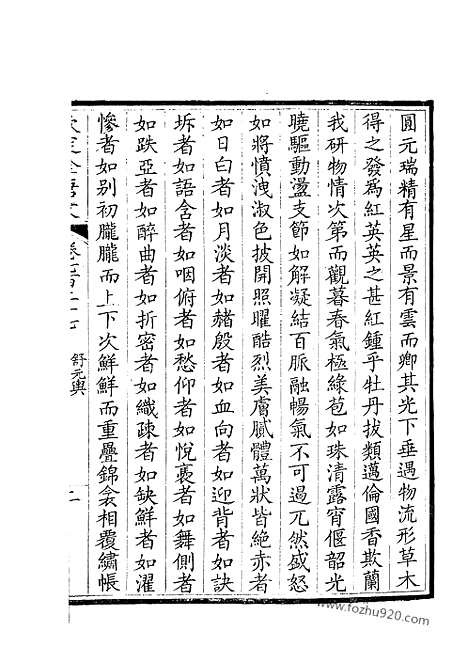 圓元瑞精有星而景有雲而卿其光下垂遇物流形草木
得之發為紅英英之甚紅鍾乎牡丹拔類邁倫國香欺蘭
我研物情次第而觀暮春氣極綠苞如珠清露宵偃韶光
曉驅動盪支節如解凝結百脈融暢氣不可遏兀然盛怒
如將憤洩淑色披開照曜酷烈美膚膩體萬狀皆絕赤者
如日白者如月淡者如赭殷者如血向者如迎背者如訣
坼者如語含者如咽俯者如愁仰者如悅裛者如舞側者
如跌亞者如醉曲者如折密者如織疎者如缺鮮者如濯
慘者如別初朧朧而上下次鮮鮮而重疊錦衾相覆繡帳
欽定全唐文
卷七百二十七
舒元輿
www.fozhu920.com